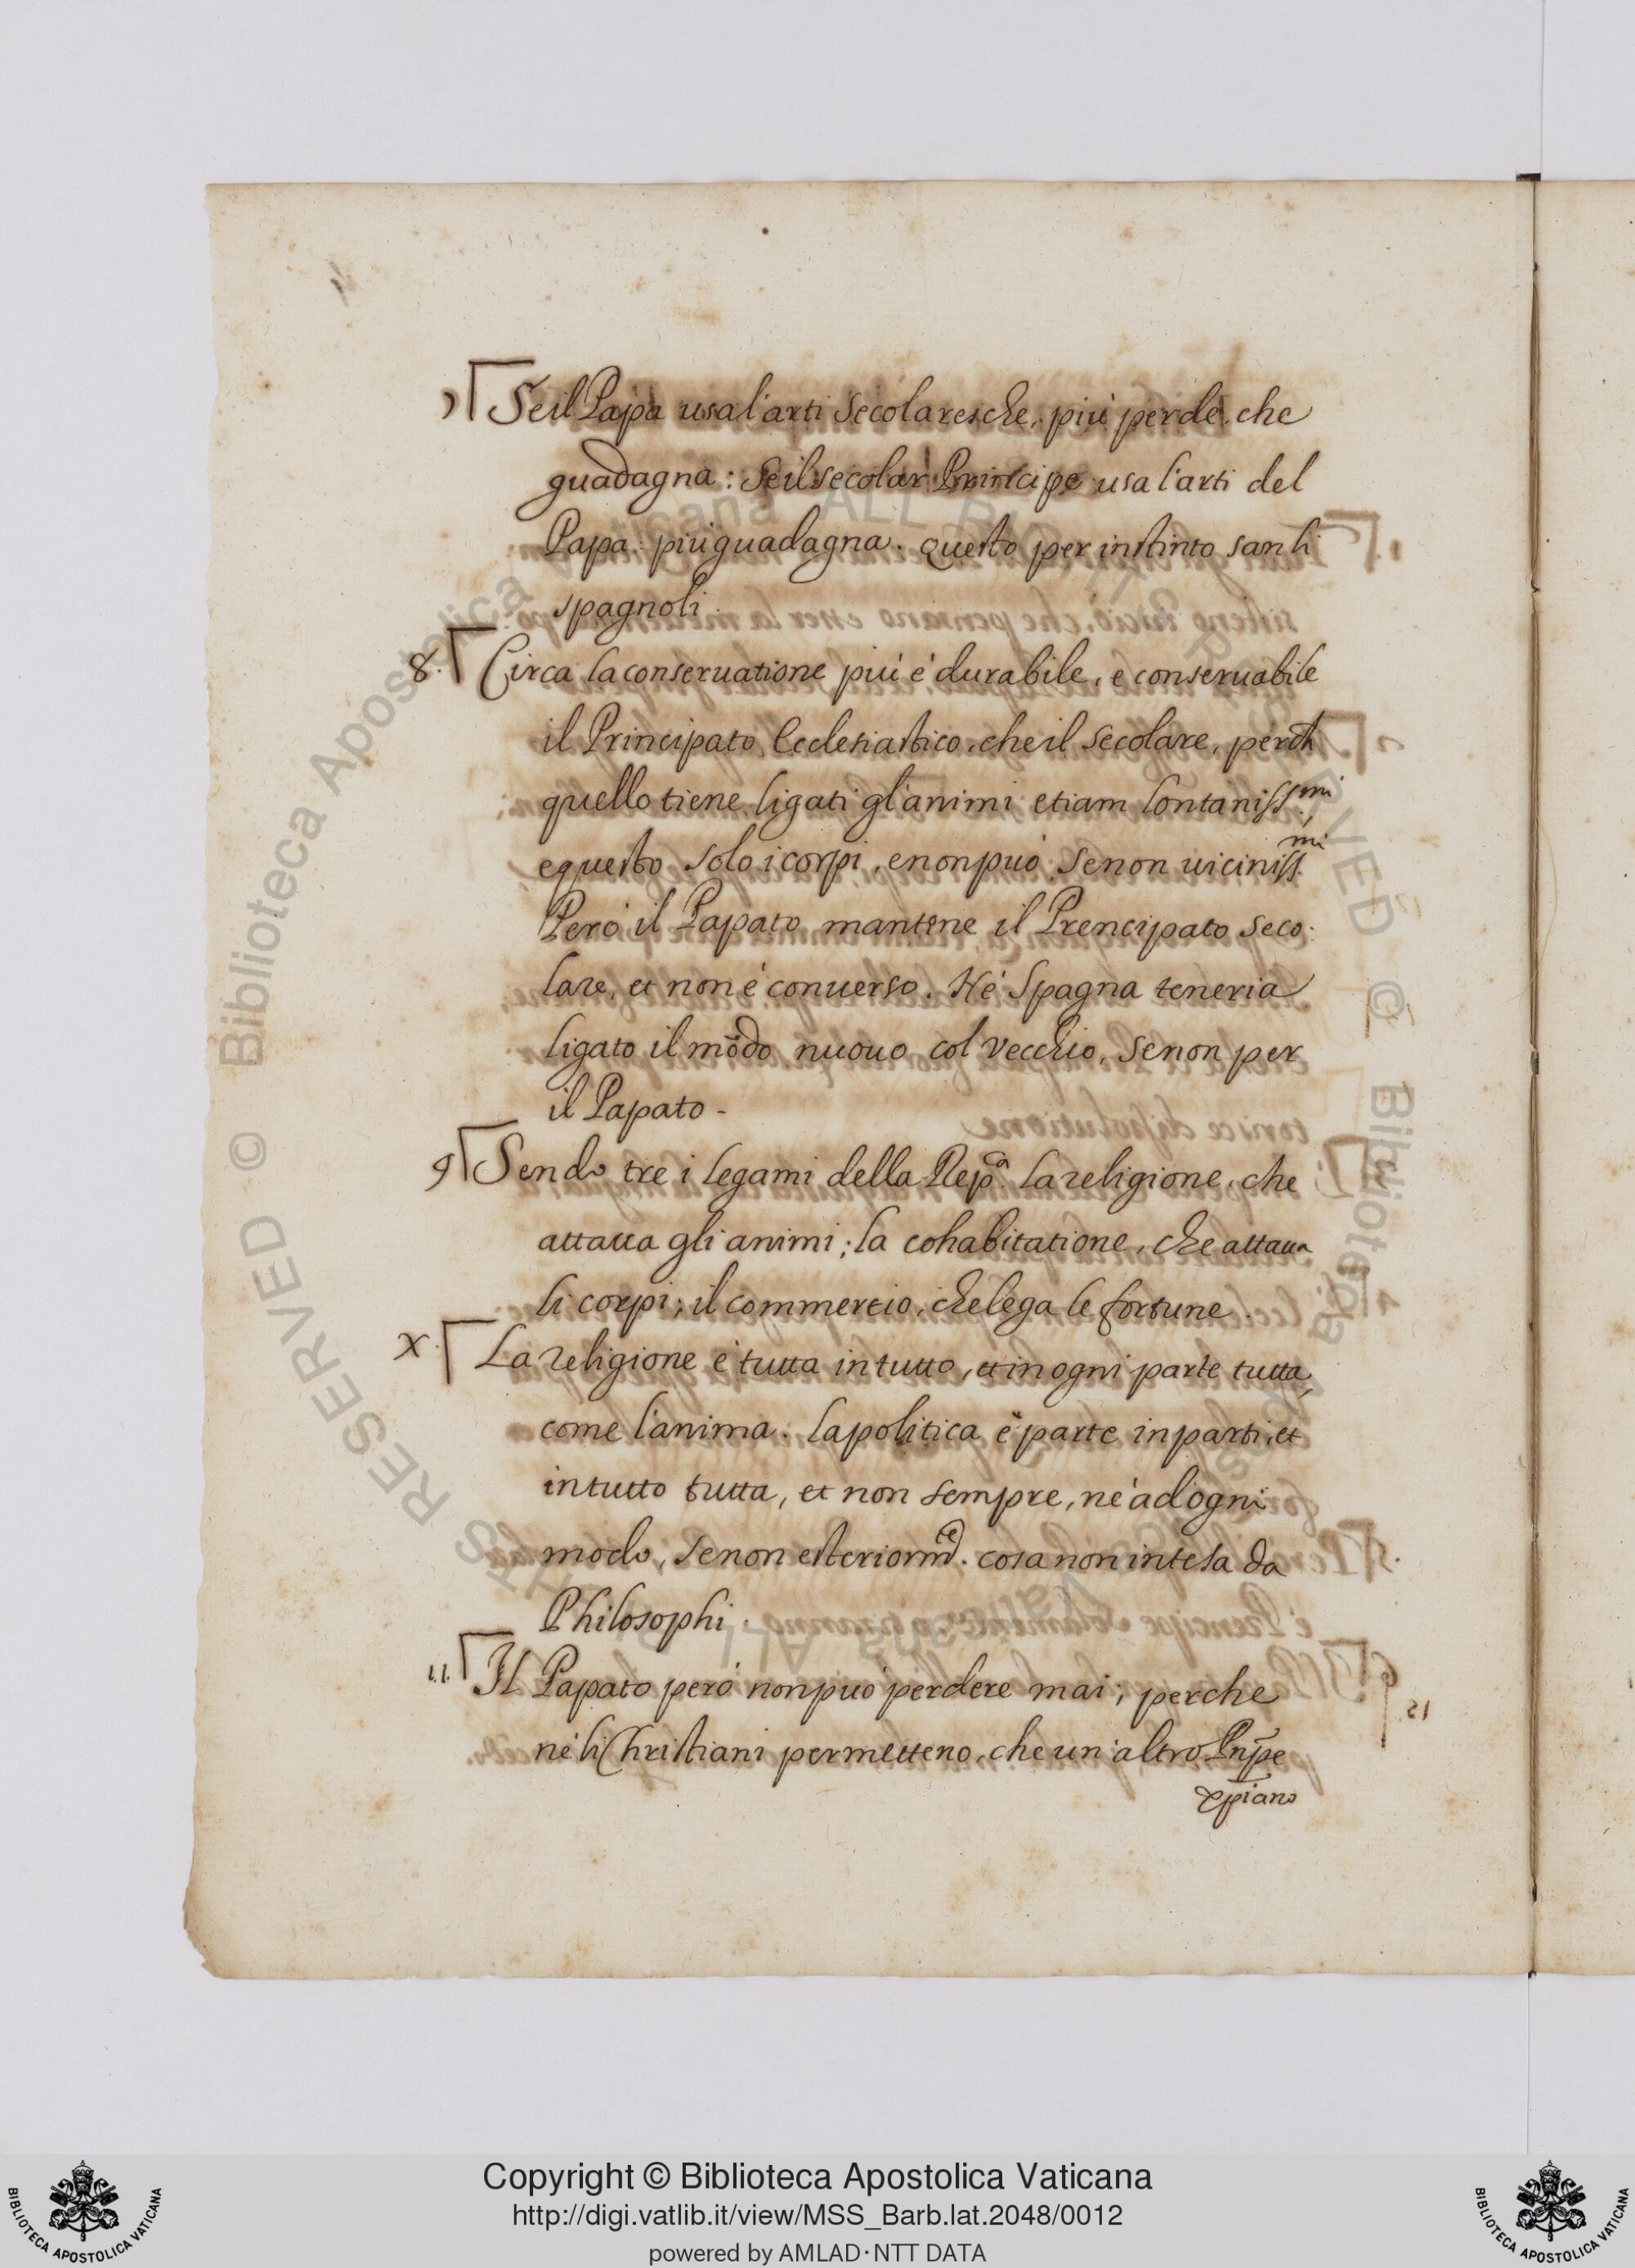 7 Se il Papa usa l'arti secolaresche, più perde, che
guadagna: Se il secolar Principe usa l'arti del
Papa più guadagna. questo per instinto san li
spagnoli.
8. Circa la conservatione più è durabile, e conservabile
il Principato Ecclesiastico, che il secolare, perch
quello tiene ligati gl'animi etiam lontaniss.mi,
e questo solo i corpi, e non può se non viciniss.mi
Però il Papato mantene il Prencipato seco:
lare, et non è converso. Nè Spagna teneria
ligato il mōdo nuovo col vecchio, se non per
il Papato -
9 Sendo tre i legami della Rep.ca la religione, che
attacca gli animi; la cohabitatione, che attacca
li corpi; il commercio, che lega le fortune.
X. La religione è tutta in tutto, et in ogni parte tutta,
come l'anima. la politica è parte in parti, et
in tutto tutta, et non sempre, nè ad ogni
modo, se non esteriorm.te. cosa non intesa da
Philosophi.
11. Il Papato però non può perdere mai; perche
nè li Christiani permetteno, che un'altro Pn̄pe
xp̄iano
Copyright © Biblioteca Apostolica Vaticana
http://digi.vatlib.it/view/MSS_Barb.lat.2048/0012
powered by AMLAD·NTT DATA
BIBLIOTECA APOSTOLICA VATICANA
BIBLIOTECA APOSTOLICA VATICANA
© Biblioteca Apostolica Vaticana ALL RIGHTS RESERVED
© Biblioteca Apostolica Vaticana ALL RIGHTS RESERVED